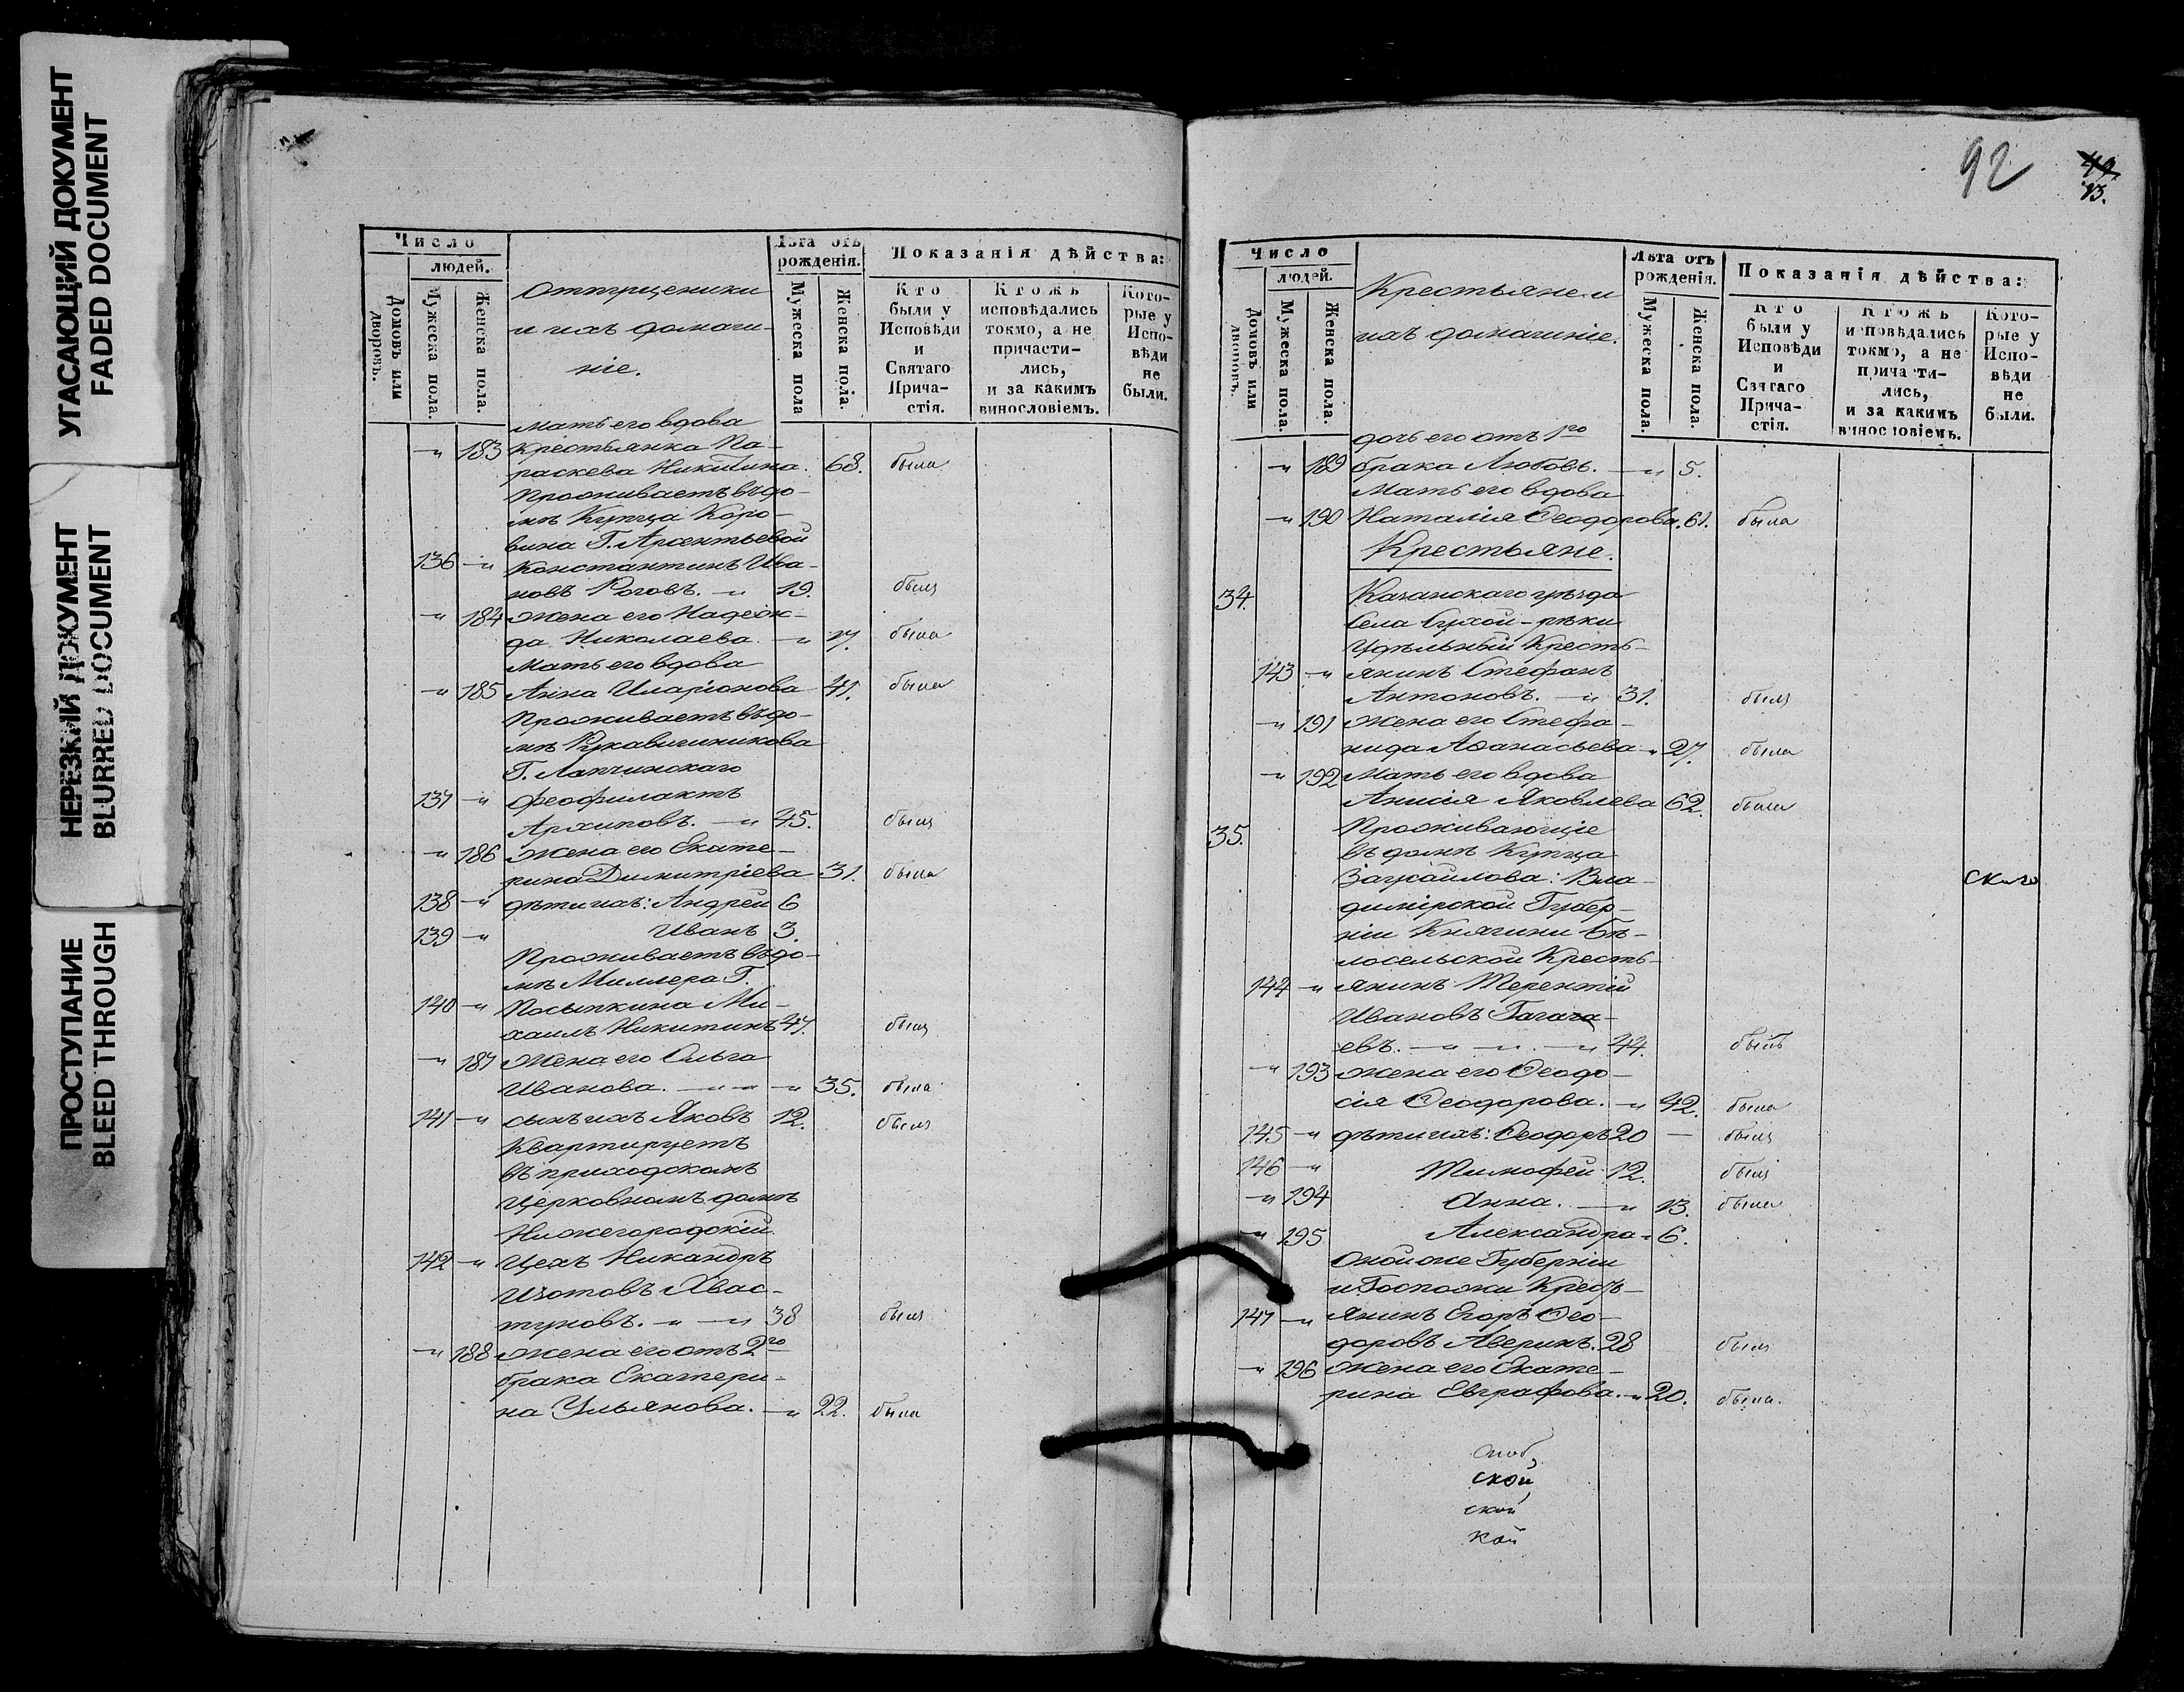 УГАСАЮЩИЙ ДОКУМЕНТ
FADED DOCUMENT
НЕРЕЗКИЙ ДОКУМЕНТ
BLURRED DOCUMENT
ПРОСТУПАНИЕ
BLEED THROUGH
Число
людей.
Домовъ или дворовъ.
Мужеска пола.
Женска пола.
Отпущеники
и ихъ домаш-
ніе.
Лѣта отъ
рожденія.
Мужеска пола
Женска пола.
Показанія дѣйства:
Кто
были у
Исповѣди
и
Святаго
Прича-
стія.
Ктожъ
исповѣдались
токмо, а не
причасти-
лись,
и за какимъ
винословіемъ.
Кото-
рые у
Испо-
вѣди
не
были.
Мать его вдова
183 Крестьянка Па-
раскева Никитина. 68. была
Проживаетъ въ до-
мѣ Купца Коро-
вина Г. Арсентьевой
136 Константинъ Ива-
новъ Роговъ. 19. былъ
184 Жена его Надеж-
да Николаева. 17. была
Мать его вдова
185 Анна Иларіонова 41. была
Проживаетъ въ до-
мѣ Рукавишникова
Г. Лопчинскаго
137 Феофилактъ
Архиповъ. 45. былъ
186 Жена его Екате-
рина Димитріева 31. была
138 дѣти ихъ: Андрей 6
139 Иванъ 3.
Проживаетъ въ до-
мѣ Миллера Г.
140 Посыпкина Ми-
хаилъ Никитинъ 47. былъ
187 Жена его Ольга
Иванова. 35. была
141 сынъ ихъ Яковъ 12. былъ
Квартируетъ
въ приходскомъ
Церковномъ домѣ
Нижегородскій
142 Цехъ Никандръ
Изотовъ Хвас-
туновъ. 38 былъ
188 Жена его отъ 2го
брака Екатери-
на Ульянова. 22. была
92
49
13.
Число
людей.
Домовъ или дворовъ.
Мужеска пола.
Женска пола.
Крестьяне и
ихъ домашніе.
Лѣта отъ
рожденія.
Мужеска пола.
Женска пола.
Показанія дѣйства:
Кто
были у
Исповѣди
и
Святаго
Прича-
стія.
Ктожъ
исповѣдались
токмо, а не
причасти-
лись,
и за какимъ
винословіемъ.
Кото-
рые у
Испо-
вѣди
не
были.
дочь его отъ 1го
189 брака Любовь. 5.
Мать его вдова
190 Наталія Ѳеодорова. 61. была
Крестьяне.
34. Казанскаго уѣзда
Села Сухой-рѣки
Удѣльный Кресть-
143 янинъ Стефанъ
Антоновъ. 31. былъ
191 Жена его Стефа-
нида Аѳанасьева 27. была
192 Мать его вдова
Анисія Яковлева 62. была
35. Проживающіе
въ домѣ Купца
Вла-
димірской Губер-
ніи Княгини Бѣ-
лосельской Кресть-
144 янинъ Терентій
Ивановъ Гагача-
евъ. 44. былъ
193 Жена его Ѳеодо-
сія Ѳеодорова. 42. была
145 дѣти ихъ: Ѳеодоръ 20 былъ
146 Тимофей 12. былъ
194 Анна. 13. была
195 Александра 6.
Оной же Губерніи
и Госпожи Кресть-
147 янинъ Егоръ Ѳео-
доровъ Аверинъ. 28 былъ
196 Жена его Екате-
рина Евграфова. 20. была.
ской
ской
кой